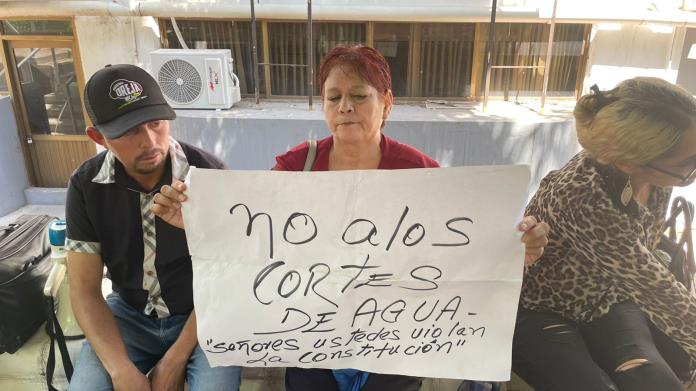 OREJA
no a los
CORTES
DE AGUA-
"Señores ustedes violan
La constitución"